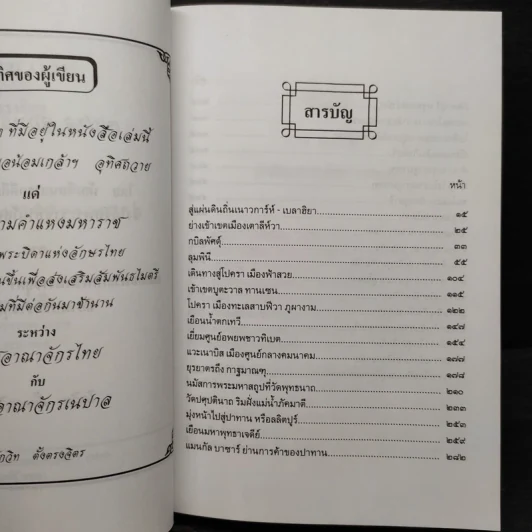 ทิศของผู้เขียน
ที่มีอยู่ในหนังสือเล่มนี้
อน้อมเกล้าฯ อุทิศถวาย
แด่
ามคำแหงมหาราช
พระบิดาแห่งอักษรไทย
นขึ้นเพื่อส่งเสริมสัมพันธไมตรี
มที่มีต่อกันมาช้านาน
ระหว่าง
อาณาจักรไทย
กับ
อาณาจักรเนปาล
ตั้งตรงจิตร
สารบัญ
หน้า
สู่แผ่นดินถิ่นเนาวการ์ห์ - เบลาฮิยา ๑๕
ย่างเข้าเขตเมืองเตาลีห์วา ๒๕
กบิลพัศดุ์ ๓๓
ลุมพินี ๕๕
เดินทางสู่โปครา เมืองฟ้าสวย ๑๐๔
เข้าเขตบูตะวาล ทานเซน ๑๑๕
โปครา เมืองทะเลสาบฟีวา ภูผางาม ๑๒๒
เยือนน้ำตกเทวี ๑๔๗
เยี่ยมศูนย์อพยพชาวทิเบต
แวะเนาบิส เมืองศูนย์กลางคมนาคม ๑๗๗
ยุรยาตรถึง กาฐมาณฑุ ๑๗๘
นมัสการพระมหาสถูปที่วัดพุทธนาถ ๒๑๐
วัดปศุปตินาถ ริมฝั่งแม่น้ำภัคมาตี ๒๓๓
มุ่งหน้าไปสู่ปาทาน หรือลลิตปูร์ ๒๕๓
เยือนมหาพุทธาเจดีย์ ๒๕๙
แมนกัล บาซาร์ ย่านการค้าของปาทาน ๒๘๒